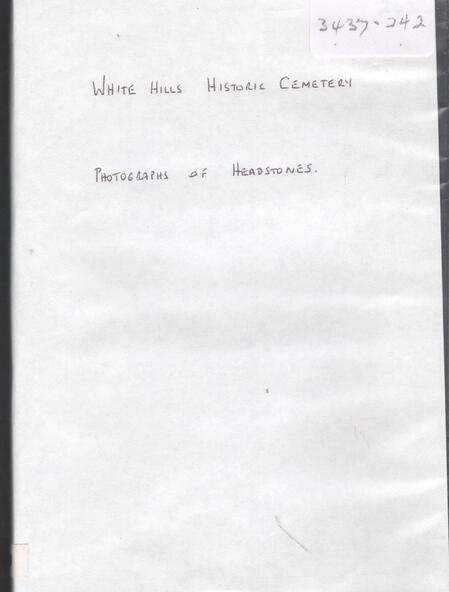 3437-242
WHITE HILLS HISTORIC CEMETERY
PHOTOGRAPHS OF HEADSTONES.